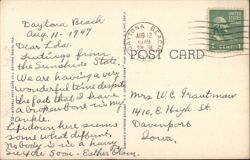 Daytona Beach
Aug. 11 - 1947
Dear Lola:
Greetings from
the Sunshine State.
We are having a very
wonderful time despite
the fact that I have
a broken bone in my
ankle.
Life down here seems
some what different.
Nobody is in a hurry
See you Soon - Esther
DAYTONA BEACH
AUG 12
1947
POST CARD
Mrs W. C. Trautman
1410, E. High St.
Davenport
Iowa,